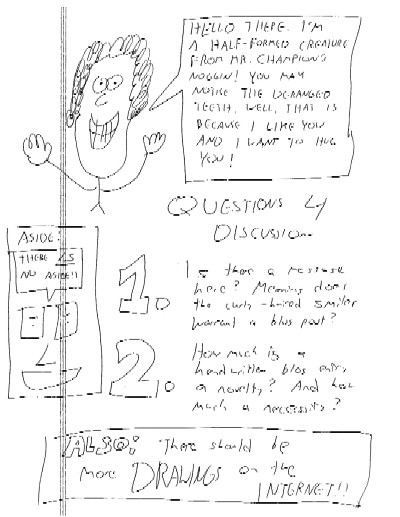 HELLO THERE. I'M
A HALF-FORMED CREATURE
FROM MR. CHAMPION'S
NOGGIN! YOU MAY
NOTICE THE DERANGED
TEETH, WELL, THAT IS
BECAUSE I LIKE YOU
AND I WANT TO HUG
YOU!
QUESTIONS 4
DISCUSSION
ASIDE:
THERE IS
NO ASIDE!!
1. Is there a response
here? Meaning does
the curly-haired smiler
warrant a blog post?
2. How much is a
handwritten blog entry
a novelty? And how
much a necessity?
ALSO: There should be
more DRAWINGS on the
INTERNET!!